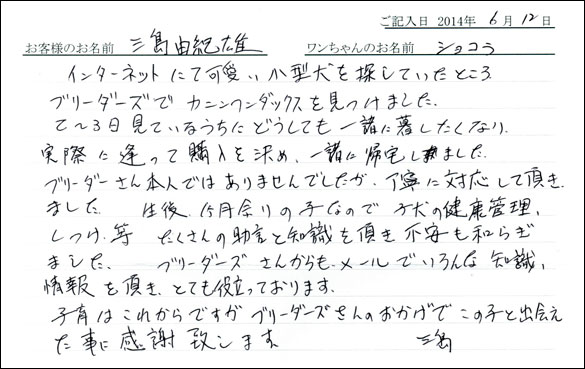 ご記入日 2014年 6月 12日
お客様のお名前 三島由紀雄 ワンちゃんのお名前 ショコラ
インターネットにて可愛い小型犬を探していたところ
ブリーダーズでカニンヘンダックスを見つけました。
2〜3日見ているうちにどうしても一諸に暮したくなり、
実際に逢って購入を決め、一諸に帰宅しました。
ブリーダーさん本人ではありませんでしたが、丁寧に対応して頂き
ました 生後、ヶ月余りの子なので子犬の健康管理、
しつけ、等 たくさんの助言と知識を頂き不安も和らぎ
ました。 ブリーダーズさんからもメールでいろんな知識、
情報を頂き、とても役立っております。
子育はこれからですがブリーダーズさんのおかげでこの子と出会え
た事に感謝致します 三島